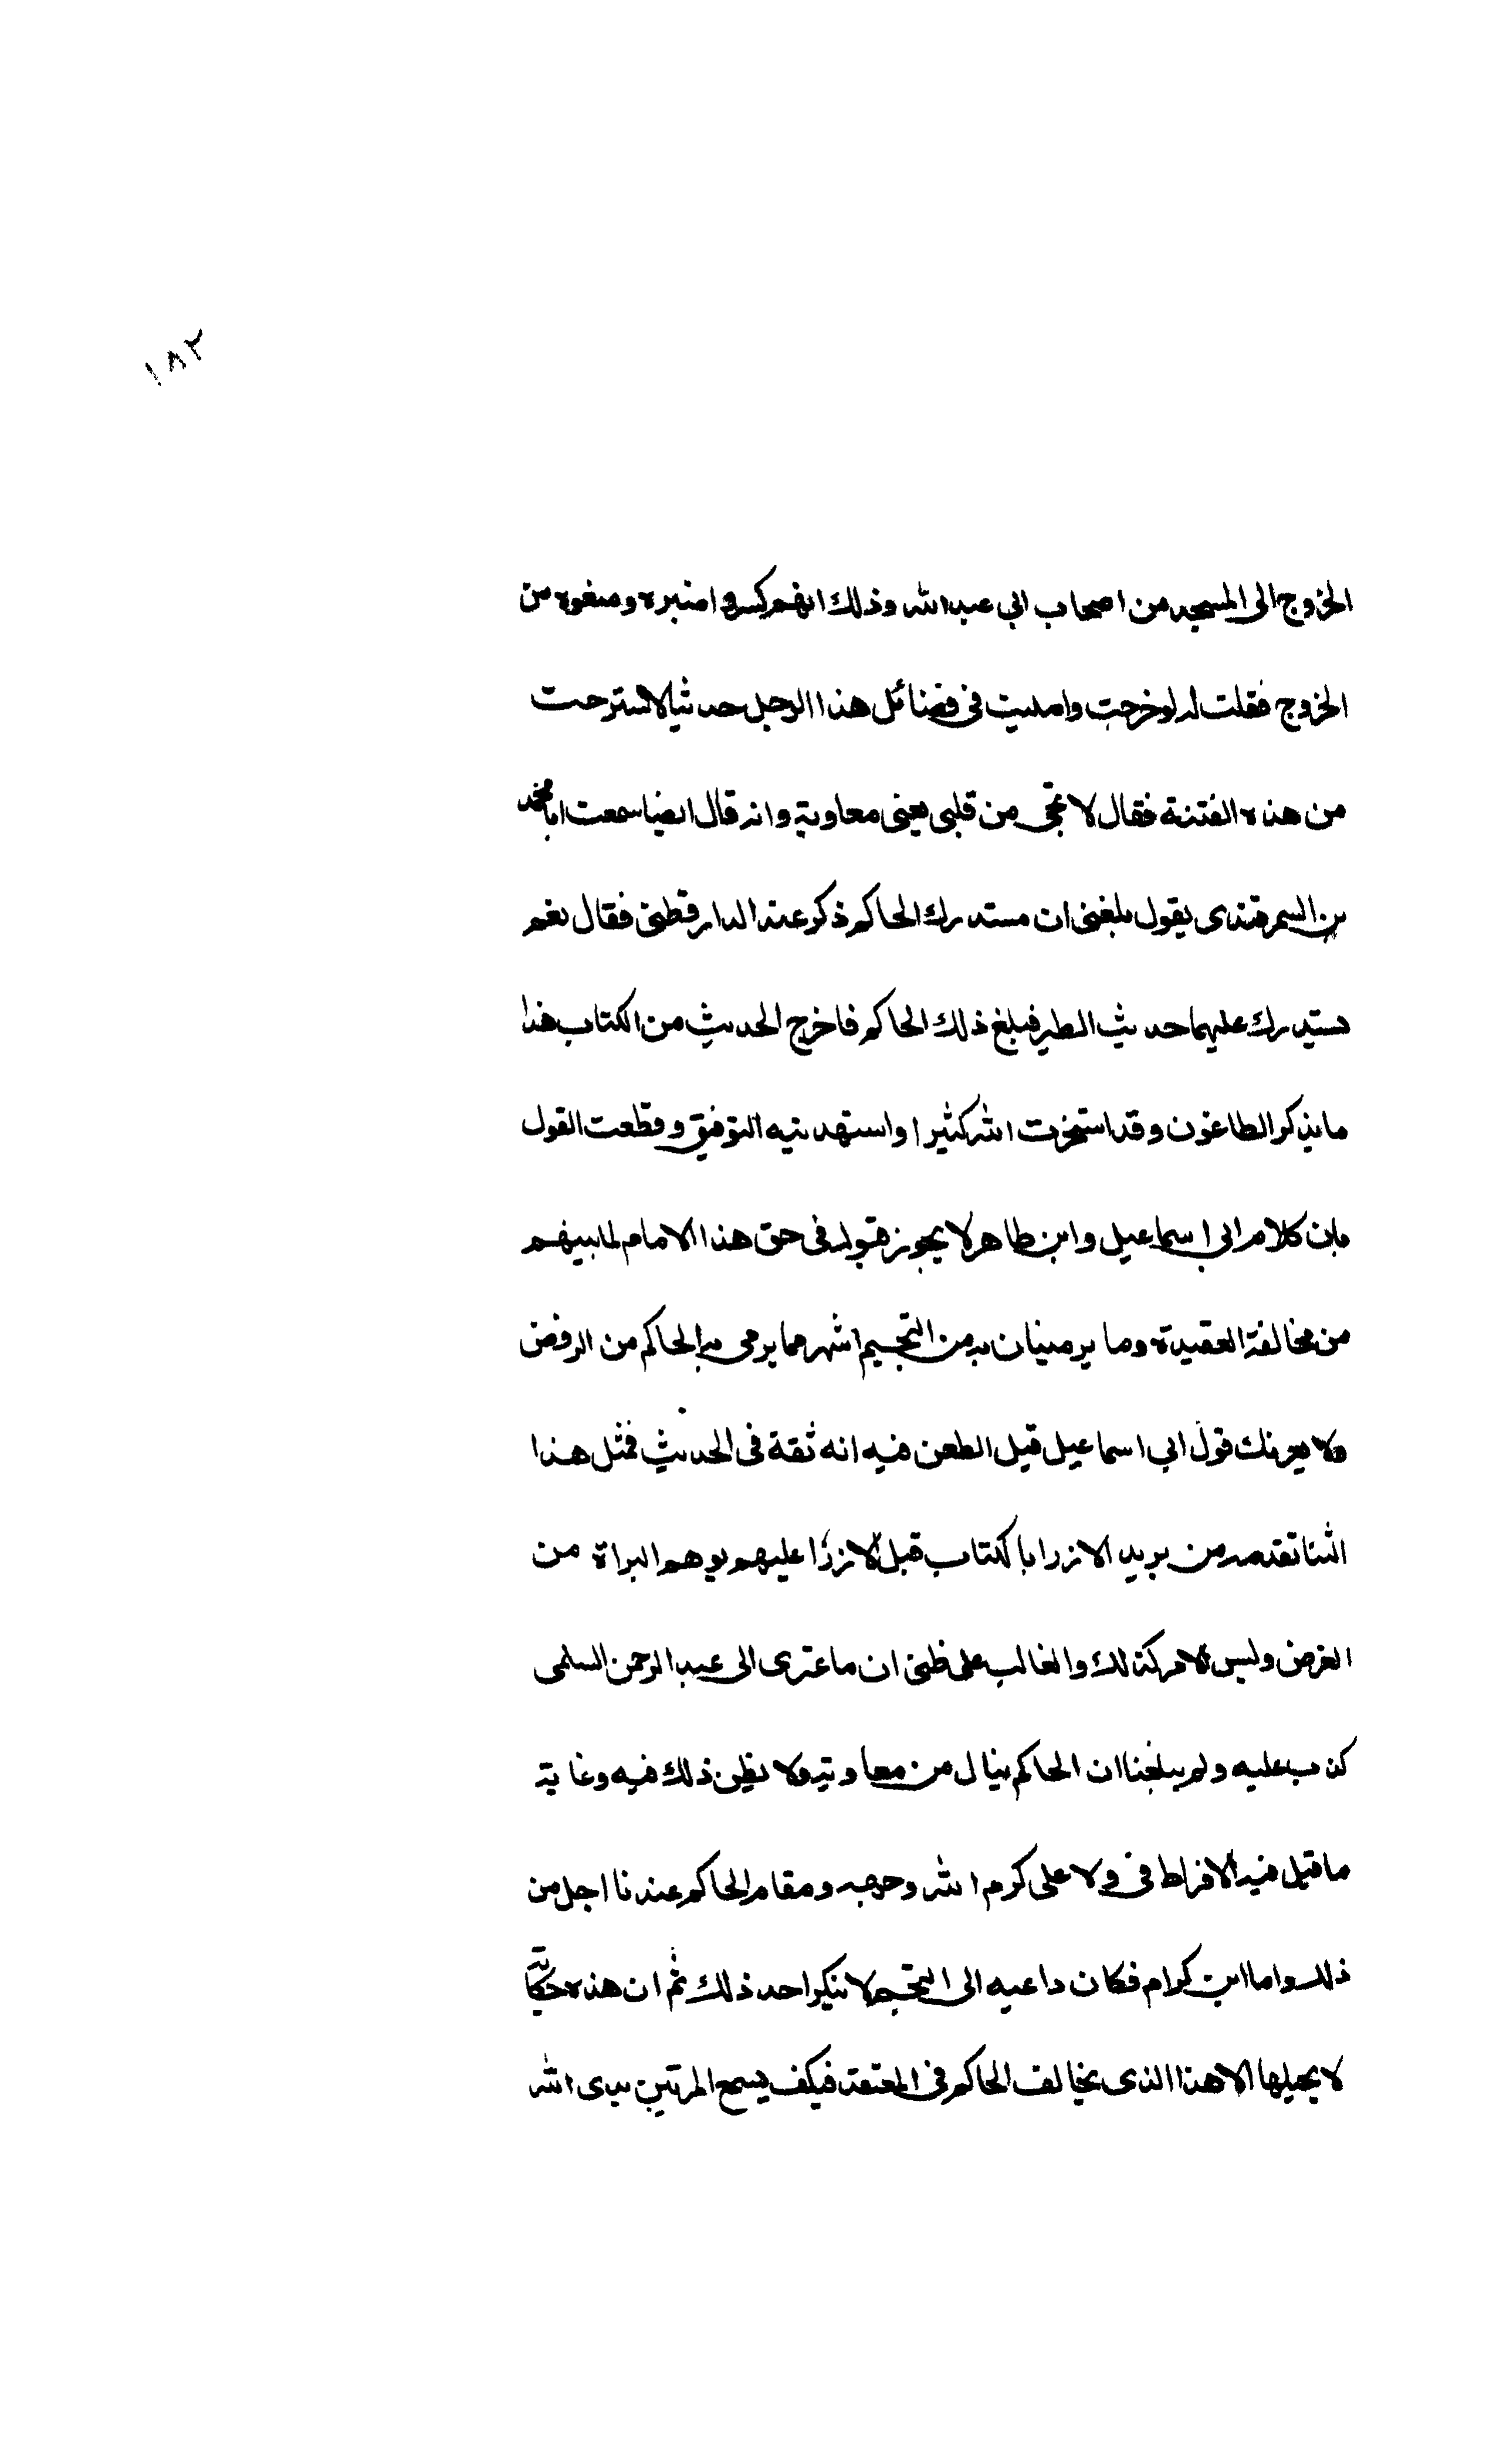 ١٨٢
الخروج الى المسجد من اصحاب ابي عبد الله وذلك انهم كسروا منبره ومنعوه من
الخروج فقلت له لو خرجت وامليت في فضائل هذا الرجل حديثا لاسترحت
من هذه الفتنة فقال لا تجي من قلبي يعني معاوية وانه قال ايضا سمعت ابا محمد
بن السمرقندي يقول بلغني ان مستدرك الحاكم ذكر عند الدارقطني فقال نعم
يستدرك عليهما حديث الطير فبلغ ذلك الحاكم فاخرج الحديث من الكتاب هذا
ما يذكر الطاعون وقد استخرت الله كثيرا واستهديته التوفيق وقطعت القول
بان كلام ابي اسماعيل وابن طاهر لا يجوز قبوله في حق هذا الامام لما بينهم
من مخالفة العقيدة وما يرميان به من التجسيم اشهر مما يرمى به الحاكم من الرفض
ولا يغرنك قول ابي اسماعيل قبل الطعن فيه انه ثقة في الحديث فمثل هذا
الثنا تقدمه من يريد الازرا بالكتاب قبل الازرا عليهم يوهم البراة من
الغرض وليس الامر كذلك والغالب على ظني ان ما عزى الى عبد الرحمن السلمى
كذب عليه ولم يبلغنا ان الحاكم ينال من معاوية ولا نظن ذلك فيه وغاية
ما قيل فيه الافراط في ولا على كرم الله وجهه ومقام الحاكم عندنا اجل من
ذلك واما ابن كرام فكان داعيه الى التجسم لا ينكر احد ذلك ثم ان هذه حكاية
لا يحيلها الا هذا الذى يخالف الحاكم في المعتقد فيكف يسمع المرتين بيدى الله